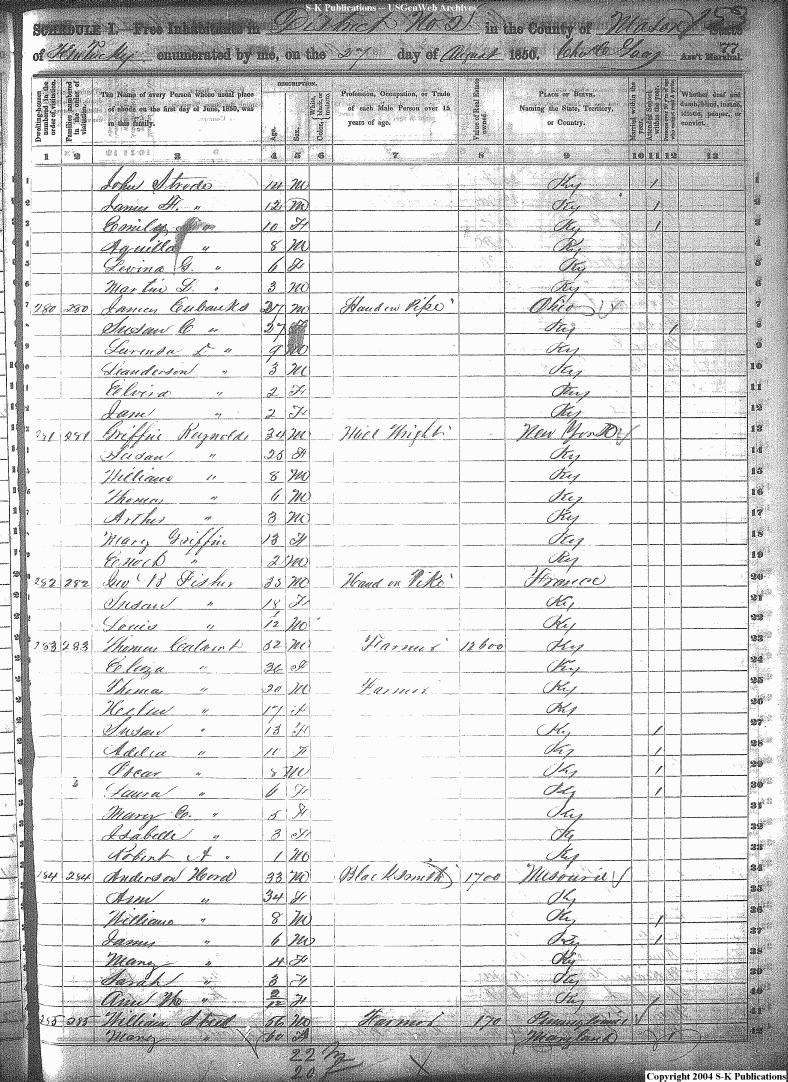 S-K Publications -- USGenWeb Archives
SCHEDULE I.—Free Inhabitants in District No 2 in the County of Mason State
of Kentucky enumerated by me, on the 27 day of August 1850. Ass't Marshal.
Dwelling-houses numbered in the order of visitation.
Families numbered in the order of visitation.
The Name of every Person whose usual place of abode on the first day of June, 1850, was in this family.
DESCRIPTION.
Age.
Sex.
Color
Profession, Occupation, or Trade of each Male Person over 15 years of age.
Value of Real Estate owned.
PLACE OF BIRTH. Naming the State, Territory, or Country.
Married within the year.
Attended School within the year.
Whether deaf and dumb, blind, insane, idiotic, pauper, or convict.
1 2 3 4 5 6 7 8 9 10 11 12 13
1 John Strode 14 M Ky 1 1
2 James H. " 12 M Ky 1 2
3 Emily " 10 F Ky 1 3
4 Aquilla " 8 M Ky 4
5 Levina G. " 6 F Ky 5
6 Martin L. " 3 M Ky 6
7 280 280 James Eubanks 37 M Hand on Pike Ohio 7
8 Susan C " 27 F Ky 1 8
9 Lurensa D " 9 M Ky 9
10 Leanderson " 3 M Ky 10
11 Elvira " 2 F Ky 11
12 Jane " 2 F Ky 12
13 281 281 Griffin Reynolds 34 M Mill Wright New York 13
14 Susan " 25 F Ky 14
15 William " 8 M Ky 15
16 Thomas " 6 M Ky 16
17 Arthur " 3 M Ky 17
18 Mary Griffin 13 F Ky 18
19 Enoch " 2 M Ky 19
20 282 282 Geo B Fisher 35 M Hand on Pike France 20
21 Susan " 18 F Ky 21
22 Louis " 1/12 M Ky 22
23 283 283 Thomas Calvert 52 M Farmer 12600 Ky 23
24 Eliza " 36 F Ky 24
25 Thomas " 20 M Farmer Ky 25
26 " 17 F Ky 26
27 Susan " 13 F Ky 1 27
28 Adelia " 11 F Ky 1 28
29 Oscar " 8 M Ky 1 29
30 Laura " 6 F Ky 1 30
31 Mary C. " 5 F Ky 31
32 Isabelle " 3 F Ky 32
33 Robert A " 1 M Ky 33
34 284 284 Anderson Hord 33 M Blacksmith 1700 Missouri 34
35 Ann " 34 F Ky 35
36 William " 8 M Ky 1 36
37 James " 6 M Ky 1 37
38 Mary " 4 F Ky 38
39 Sarah " 3 F Ky 39
40 Ann M " 2/12 F Ky 40
41 285 285 William Steel 56 M Farmer 170 Pennsylvania 41
42 Mary " 60 F Maryland 1 42
22 M
20
Copyright 2004 S-K Publications